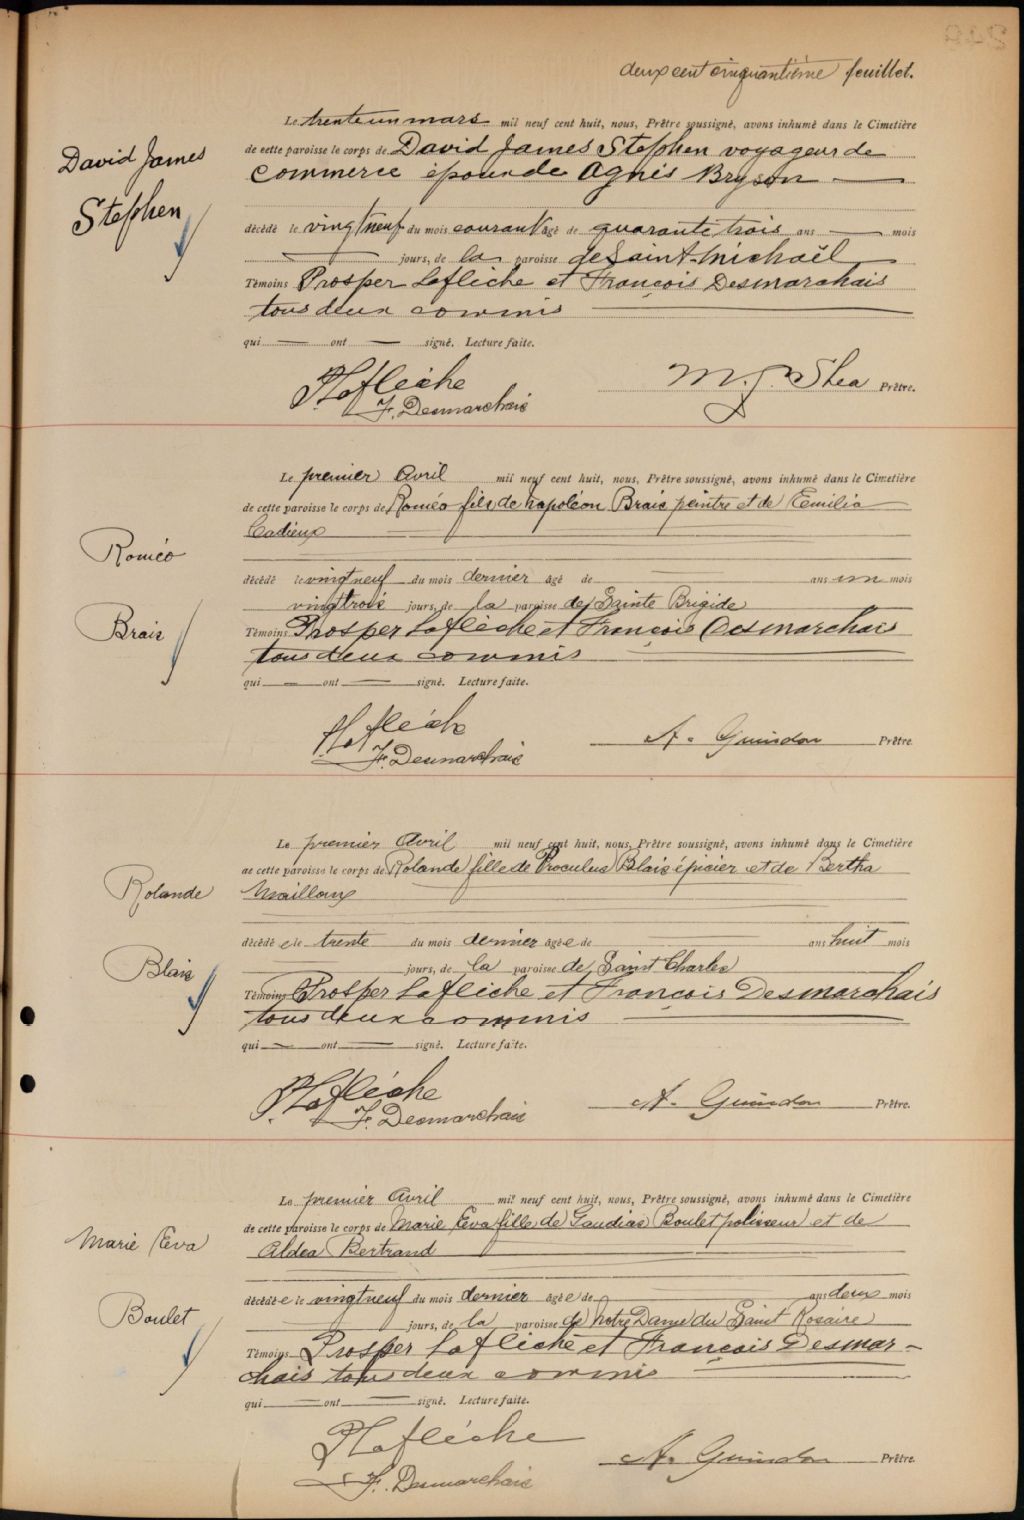 deux cent cinquantième feuillet.
Le trente un mars mil neuf cent huit, nous, Prêtre soussigné, avons inhumé dans le Cimetière
David James
de cette paroisse le corps de David James Stephen voyageur de
commerce époux de Agnis Bryson
Stephen
décédé le vingt neuf du mois courant âgé de quarante trois ans mois
jours, de la paroisse de Saint Michaël
Témoins Prosper Laflèche et François Desmarchais
tous deux commis
qui ont signé. Lecture faite.
P. Laflèche
M. J. Shea Prêtre.
F. Desmarchais
Le premier Avril mil neuf cent huit, nous, Prêtre soussigné, avons inhumé dans le Cimetière
de cette paroisse le corps de Roméo fils de Napoléon Brais peintre et de Emilia
Cadieux
Roméo
décédé le vingt neuf du mois dernier âgé de ans un mois
vingt trois jours, de la paroisse de Sainte Brigide
Brais
Témoins Prosper Laflèche et François Desmarchais
tous deux commis
qui ont signé. Lecture faite.
P. Laflèche
A. Guindon Prêtre
F. Desmarchais
Le premier Avril mil neuf cent huit, nous, Prêtre soussigné, avons inhumé dans le Cimetière
de cette paroisse le corps de Rolande fille de Proculus Blais épicier et de Bertha
Rolande
Mailloux
décédée le trente du mois dernier âgée de ans huit mois
Blais
jours, de la paroisse de Saint Charles
Témoins Prosper Laflèche et François Desmarchais
tous deux commis
qui ont signé. Lecture faite.
P. Laflèche
A. Guindon Prêtre.
F. Desmarchais
Le premier Avril mil neuf cent huit, nous, Prêtre soussigné, avons inhumé dans le Cimetière
de cette paroisse le corps de Marie Eva fille de Gaudias Boulet polisseur et de
Marie Eva
Aldea Bertrand
décédée le vingt neuf du mois dernier âgée de ans deux mois
Boulet
jours, de la paroisse de Notre Dame du Saint Rosaire
Témoins Prosper Laflèche et François Desmar-
chais tous deux commis
qui ont signé. Lecture faite.
P. Laflèche
A. Guindon Prêtre.
F. Desmarchais